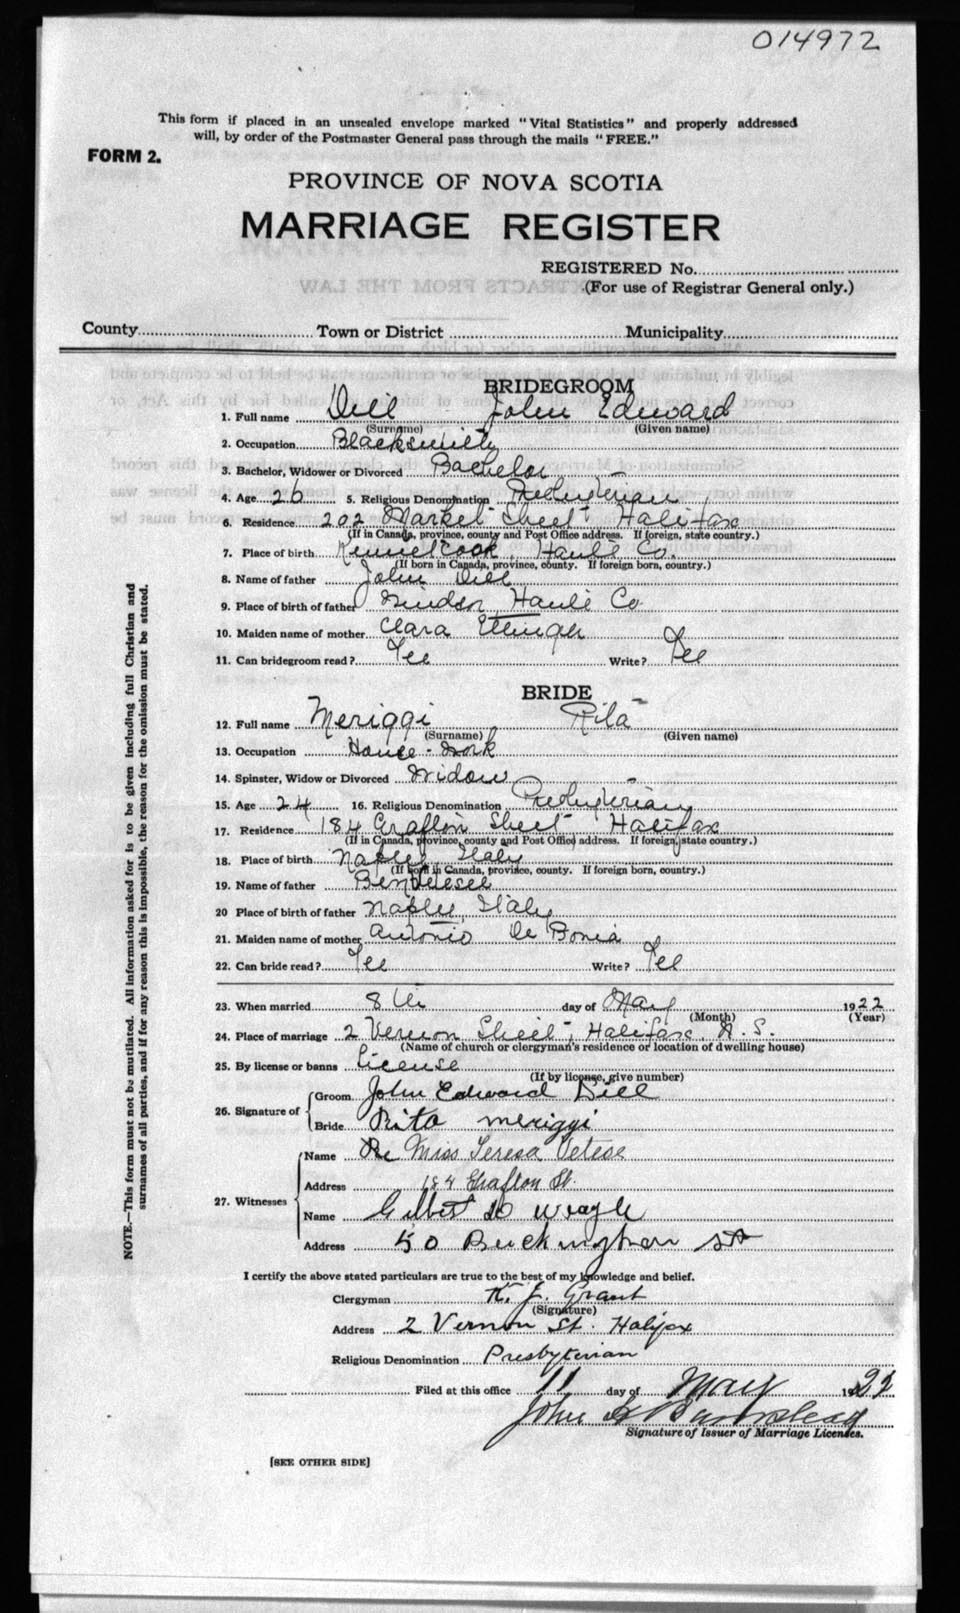 014972
This form if placed in an unsealed envelope marked "Vital Statistics" and properly addressed
will, by order of the Postmaster General pass through the mails "FREE."
FORM 2.
PROVINCE OF NOVA SCOTIA
MARRIAGE REGISTER
REGISTERED No.
(For use of Registrar General only.)
County Town or District Municipality
BRIDEGROOM
1. Full name Dill John Edward
(Surname) (Given name)
2. Occupation Blacksmith
3. Bachelor, Widower or Divorced Bachelor
4. Age 26 5. Religious Denomination Presbyterian
6. Residence 202 Market Street Halifax
(If in Canada, province, county and Post Office address. If foreign, state country.)
7. Place of birth Kennetcook, Hants Co.
(If born in Canada, province, county. If foreign born, country.)
8. Name of father John Dill
9. Place of birth of father Windsor, Hants Co
10. Maiden name of mother Clara Ettinger
11. Can bridegroom read? Yes Write? Yes
BRIDE
12. Full name Meriggi Rita
(Surname) (Given name)
13. Occupation House-Work
14. Spinster, Widow or Divorced Widow
15. Age 24 16. Religious Denomination Presbyterian
17. Residence 184 Grafton Street Halifax
(If in Canada, province, county and Post Office address. If foreign, state country.)
18. Place of birth Naples, Italy
(If born in Canada, province, county. If foreign born, country.)
19. Name of father
20 Place of birth of father Naples, Italy
21. Maiden name of mother Antonio De Bonia
22. Can bride read? Yes Write? Yes
23. When married 8th day of May 1922
(Month) (Year)
24. Place of marriage 2 Vernon Street, Halifax, N.S.
(Name of church or clergyman's residence or location of dwelling house)
25. By license or banns License
(If by license, give number)
26. Signature of Groom John Edward Dill
Bride Rita Meriggi
27. Witnesses Name Miss Teresa Vetese
Address 184 Grafton St.
Name Gilbert D Wragle
Address 50 Buckingham St
I certify the above stated particulars are true to the best of my knowledge and belief.
Clergyman K. J. Grant
(Signature)
Address 2 Vernon St. Halifax
Religious Denomination Presbyterian
Filed at this office 11 day of May 1922
John H Barnstead
Signature of Issuer of Marriage Licenses.
[SEE OTHER SIDE]
NOTE.—This form must not be mutilated. All information asked for is to be given including full Christian and
surnames of all parties, and if for any reason this is impossible, the reason for the omission must be stated.